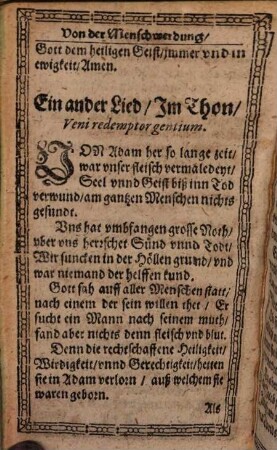 Von der Menschwerdung/
Gott dem heiligen Geist/immer vnd in
ewigkeit/Amen.
Ein ander Lied/Im Thon/
Veni redemptor gentium.
VON Adam her so lange zeit/
war vnser fleisch vermaledeyt/
Seel vnnd Geist biß inn Tod
verwund/am gantzen Menschen nichts
gesundt.
Vns hat vmbfangen grosse Noth/
vber vns herrschet Sünd vnnd Todt/
Wir suncken in der Höllen grund/vnd
war niemand der helffen kund.
Gott sah auff aller Menschen statt/
nach einem der sein willen thet/Er
sucht ein Mann nach seinem muth/
fand aber nichts denn fleisch vnd blut.
Denn die rechtschaffene Heiligkeit/
Wirdigkeit/vnnd Gerechtigkeit/hetten
sie in Adam verlorn/auß welchem sie
waren geborn.
Als